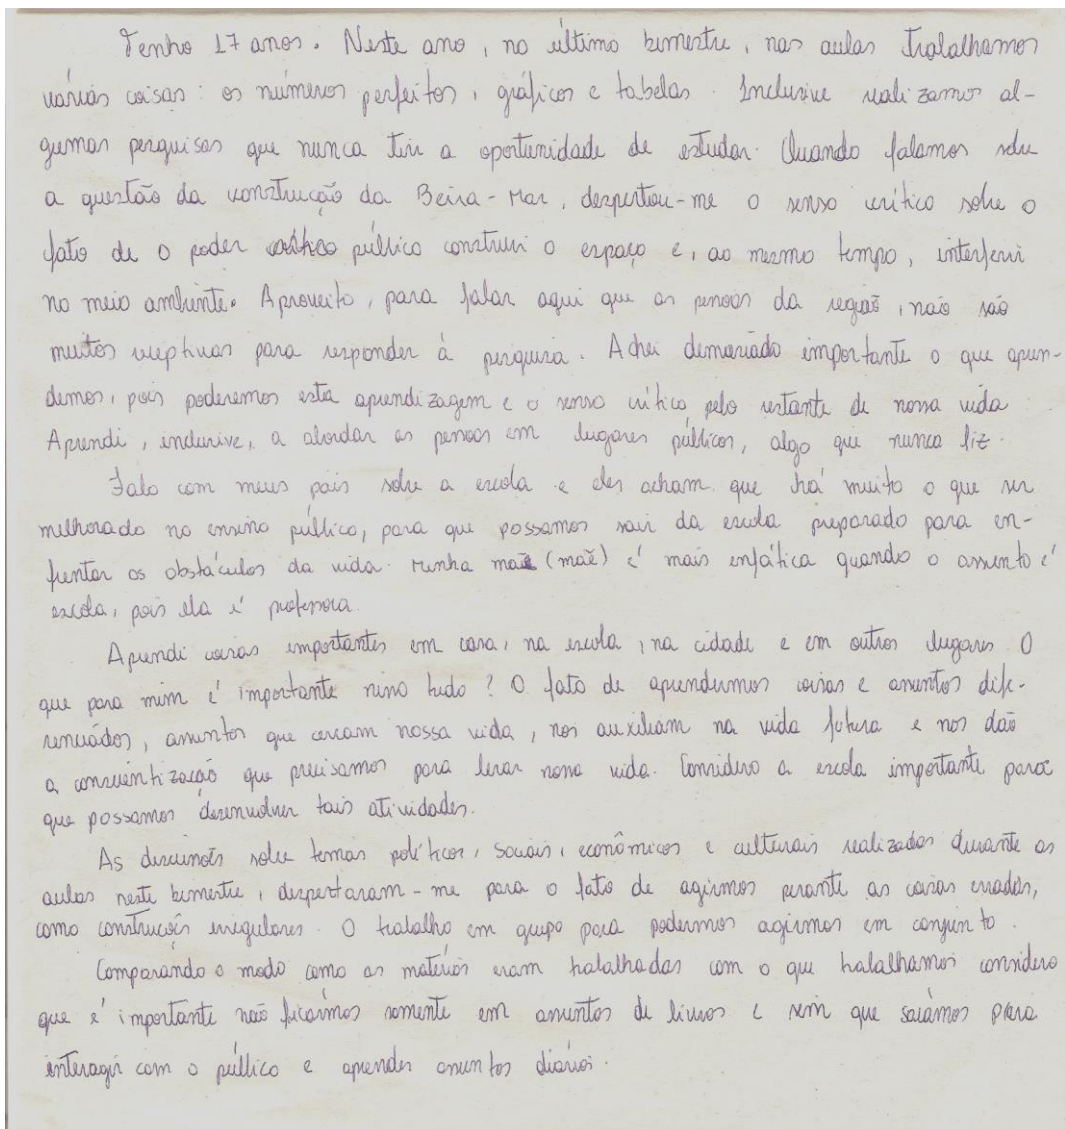 Tenho 17 anos. Neste ano, no último bimestre, nas aulas trabalhamos
várias coisas: os números perfeitos, gráficos e tabelas. Inclusive realizamos al-
gumas pesquisas que nunca tive a oportunidade de estudar. Quando falamos sobre
a questão da construção da Beira-Mar, despertou-me o senso crítico sobre o
fato de o poder público construir o espaço e, ao mesmo tempo, interferir
no meio ambiente. Aproveito, para falar aqui que as pessoas da região, não são
muitos receptivas para responder à pesquisa. Achei demasiado importante o que apren-
demos, pois poderemos esta aprendizagem e o senso crítico pelo restante de nossa vida
Aprendi, inclusive, a abordar as pessoas em lugares públicos, algo que nunca fiz.
Falo com meus pais sobre a escola e eles acham que há muito o que ser
melhorado no ensino público, para que possamos sair da escola preparado para en-
frentar os obstáculos da vida. Minha (mãe) é mais enfática quando o assunto é
escola, pois ela é professora.
Aprendi coisas importantes em casa, na escola, na cidade e em outros lugares. O
que para mim é importante nisso tudo? O fato de aprendermos coisas e assuntos dife-
renciados, assuntos que cercam nossa vida, nos auxiliam na vida futura e nos dão
a conscientização que precisamos para levar nossa vida. Considero a escola importante para
que possamos desenvolver tais atividades.
As discussões sobre temas políticos, sociais, econômicos e culturais realizados durante as
aulas neste bimestre, despertaram-me para o fato de agirmos perante as coisas erradas,
como construções irregulares. O trabalho em grupo para podermos agirmos em conjunto.
Comparando o modo como as matérias eram trabalhadas com o que trabalhamos considero
que é importante não ficarmos somente em assuntos de livros e sem que saiamos para
interagir com o público e aprender assuntos diários.